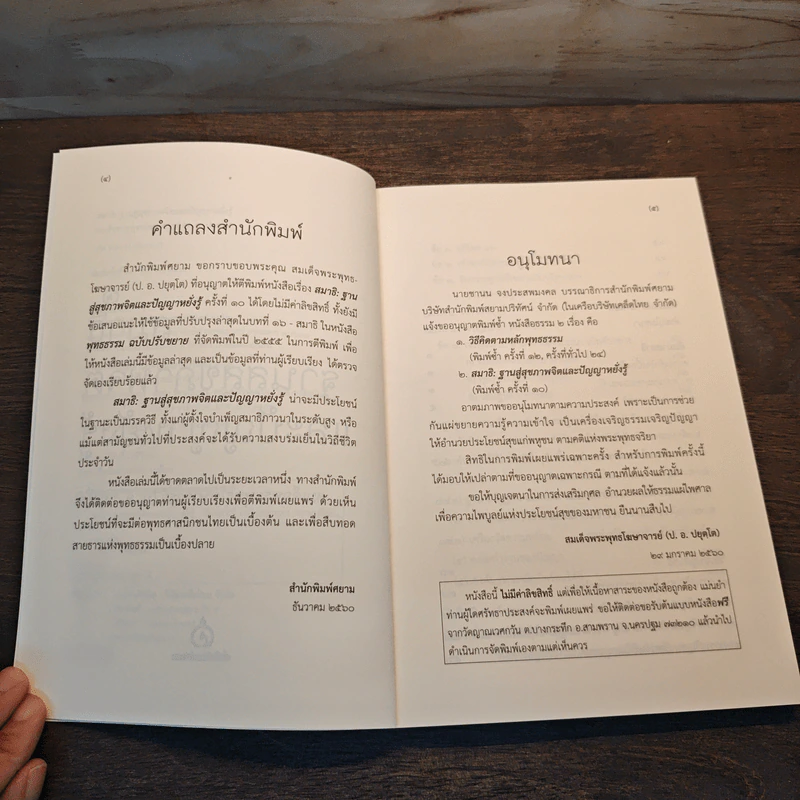 (๔)
คำแถลงสำนักพิมพ์
สำนักพิมพ์ศยาม ขอกราบขอบพระคุณ สมเด็จพระพุทธ-
โฆษาจารย์ (ป. อ. ปยุตฺโต) ที่อนุญาตให้ตีพิมพ์หนังสือเรื่อง สมาธิ: ฐาน
สู่สุขภาพจิตและปัญญาหยั่งรู้ ครั้งที่ ๑๐ ได้โดยไม่มีค่าลิขสิทธิ์ ทั้งยังมี
ข้อเสนอแนะให้ใช้ข้อมูลที่ปรับปรุงล่าสุดในบทที่ ๑๖ - สมาธิ ในหนังสือ
พุทธธรรม ฉบับปรับขยาย ที่จัดพิมพ์ในปี ๒๕๕๕ ในการตีพิมพ์ เพื่อ
ให้หนังสือเล่มนี้มีข้อมูลล่าสุด และเป็นข้อมูลที่ท่านผู้เรียบเรียง ได้ตรวจ
จัดเองเรียบร้อยแล้ว
สมาธิ: ฐานสู่สุขภาพจิตและปัญญาหยั่งรู้ น่าจะมีประโยชน์
ในฐานะเป็นมรรควิธี ทั้งแก่ผู้ตั้งใจบำเพ็ญสมาธิภาวนาในระดับสูง หรือ
แม้แต่สามัญชนทั่วไปที่ประสงค์จะได้รับความสงบร่มเย็นในวิถีชีวิต
ประจำวัน
หนังสือเล่มนี้ได้ขาดตลาดไปเป็นระยะเวลาหนึ่ง ทางสำนักพิมพ์
จึงได้ติดต่อขออนุญาตท่านผู้เรียบเรียงเพื่อตีพิมพ์เผยแพร่ ด้วยเห็น
ประโยชน์ที่จะมีต่อพุทธศาสนิกชนไทยเป็นเบื้องต้น และเพื่อสืบทอด
สายธารแห่งพุทธธรรมเป็นเบื้องปลาย
สำนักพิมพ์ศยาม
ธันวาคม ๒๕๖๐
(๕)
อนุโมทนา
นายชานน จงประสพมงคล บรรณาธิการสำนักพิมพ์ศยาม
บริษัทสำนักพิมพ์สยามปริทัศน์ จำกัด (ในเครือบริษัทเคล็ดไทย จำกัด)
แจ้งขออนุญาตพิมพ์ซ้ำ หนังสือธรรม ๒ เรื่อง คือ
๑. วิธีคิดตามหลักพุทธธรรม
(พิมพ์ซ้ำ ครั้งที่ ๑๒, ครั้งที่ทั่วไป ๒๔)
๒. สมาธิ: ฐานสู่สุขภาพจิตและปัญญาหยั่งรู้
(พิมพ์ซ้ำ ครั้งที่ ๑๐)
อาตมภาพขออนุโมทนาตามความประสงค์ เพราะเป็นการช่วย
กันแผ่ขยายความรู้ความเข้าใจ เป็นเครื่องเจริญธรรมเจริญปัญญา
ให้อำนวยประโยชน์สุขแก่พหูชน ตามคติแห่งพระพุทธจริยา
สิทธิในการพิมพ์เผยแพร่เฉพาะครั้ง สำหรับการพิมพ์ครั้งนี้
ได้มอบให้เปล่าตามที่ขออนุญาตเฉพาะกรณี ตามที่ได้แจ้งแล้วนั้น
ขอให้บุญเจตนาในการส่งเสริมกุศล อำนวยผลให้ธรรมแผ่ไพศาล
เพื่อความไพบูลย์แห่งประโยชน์สุขของมหาชน ยืนนานสืบไป
สมเด็จพระพุทธโฆษาจารย์ (ป. อ. ปยุตฺโต)
๒๙ มกราคม ๒๕๖๐
หนังสือนี้ ไม่มีค่าลิขสิทธิ์ แต่เพื่อให้เนื้อหาสาระของหนังสือถูกต้อง แม่นยำ
ท่านผู้ใดศรัทธาประสงค์จะพิมพ์เผยแพร่ ขอให้ติดต่อขอรับต้นแบบหนังสือฟรี
จากวัดญาณเวศกวัน ต.บางกระทึก อ.สามพราน จ.นครปฐม ๗๓๒๑๐ แล้วนำไป
ดำเนินการจัดพิมพ์เองตามแต่เห็นควร